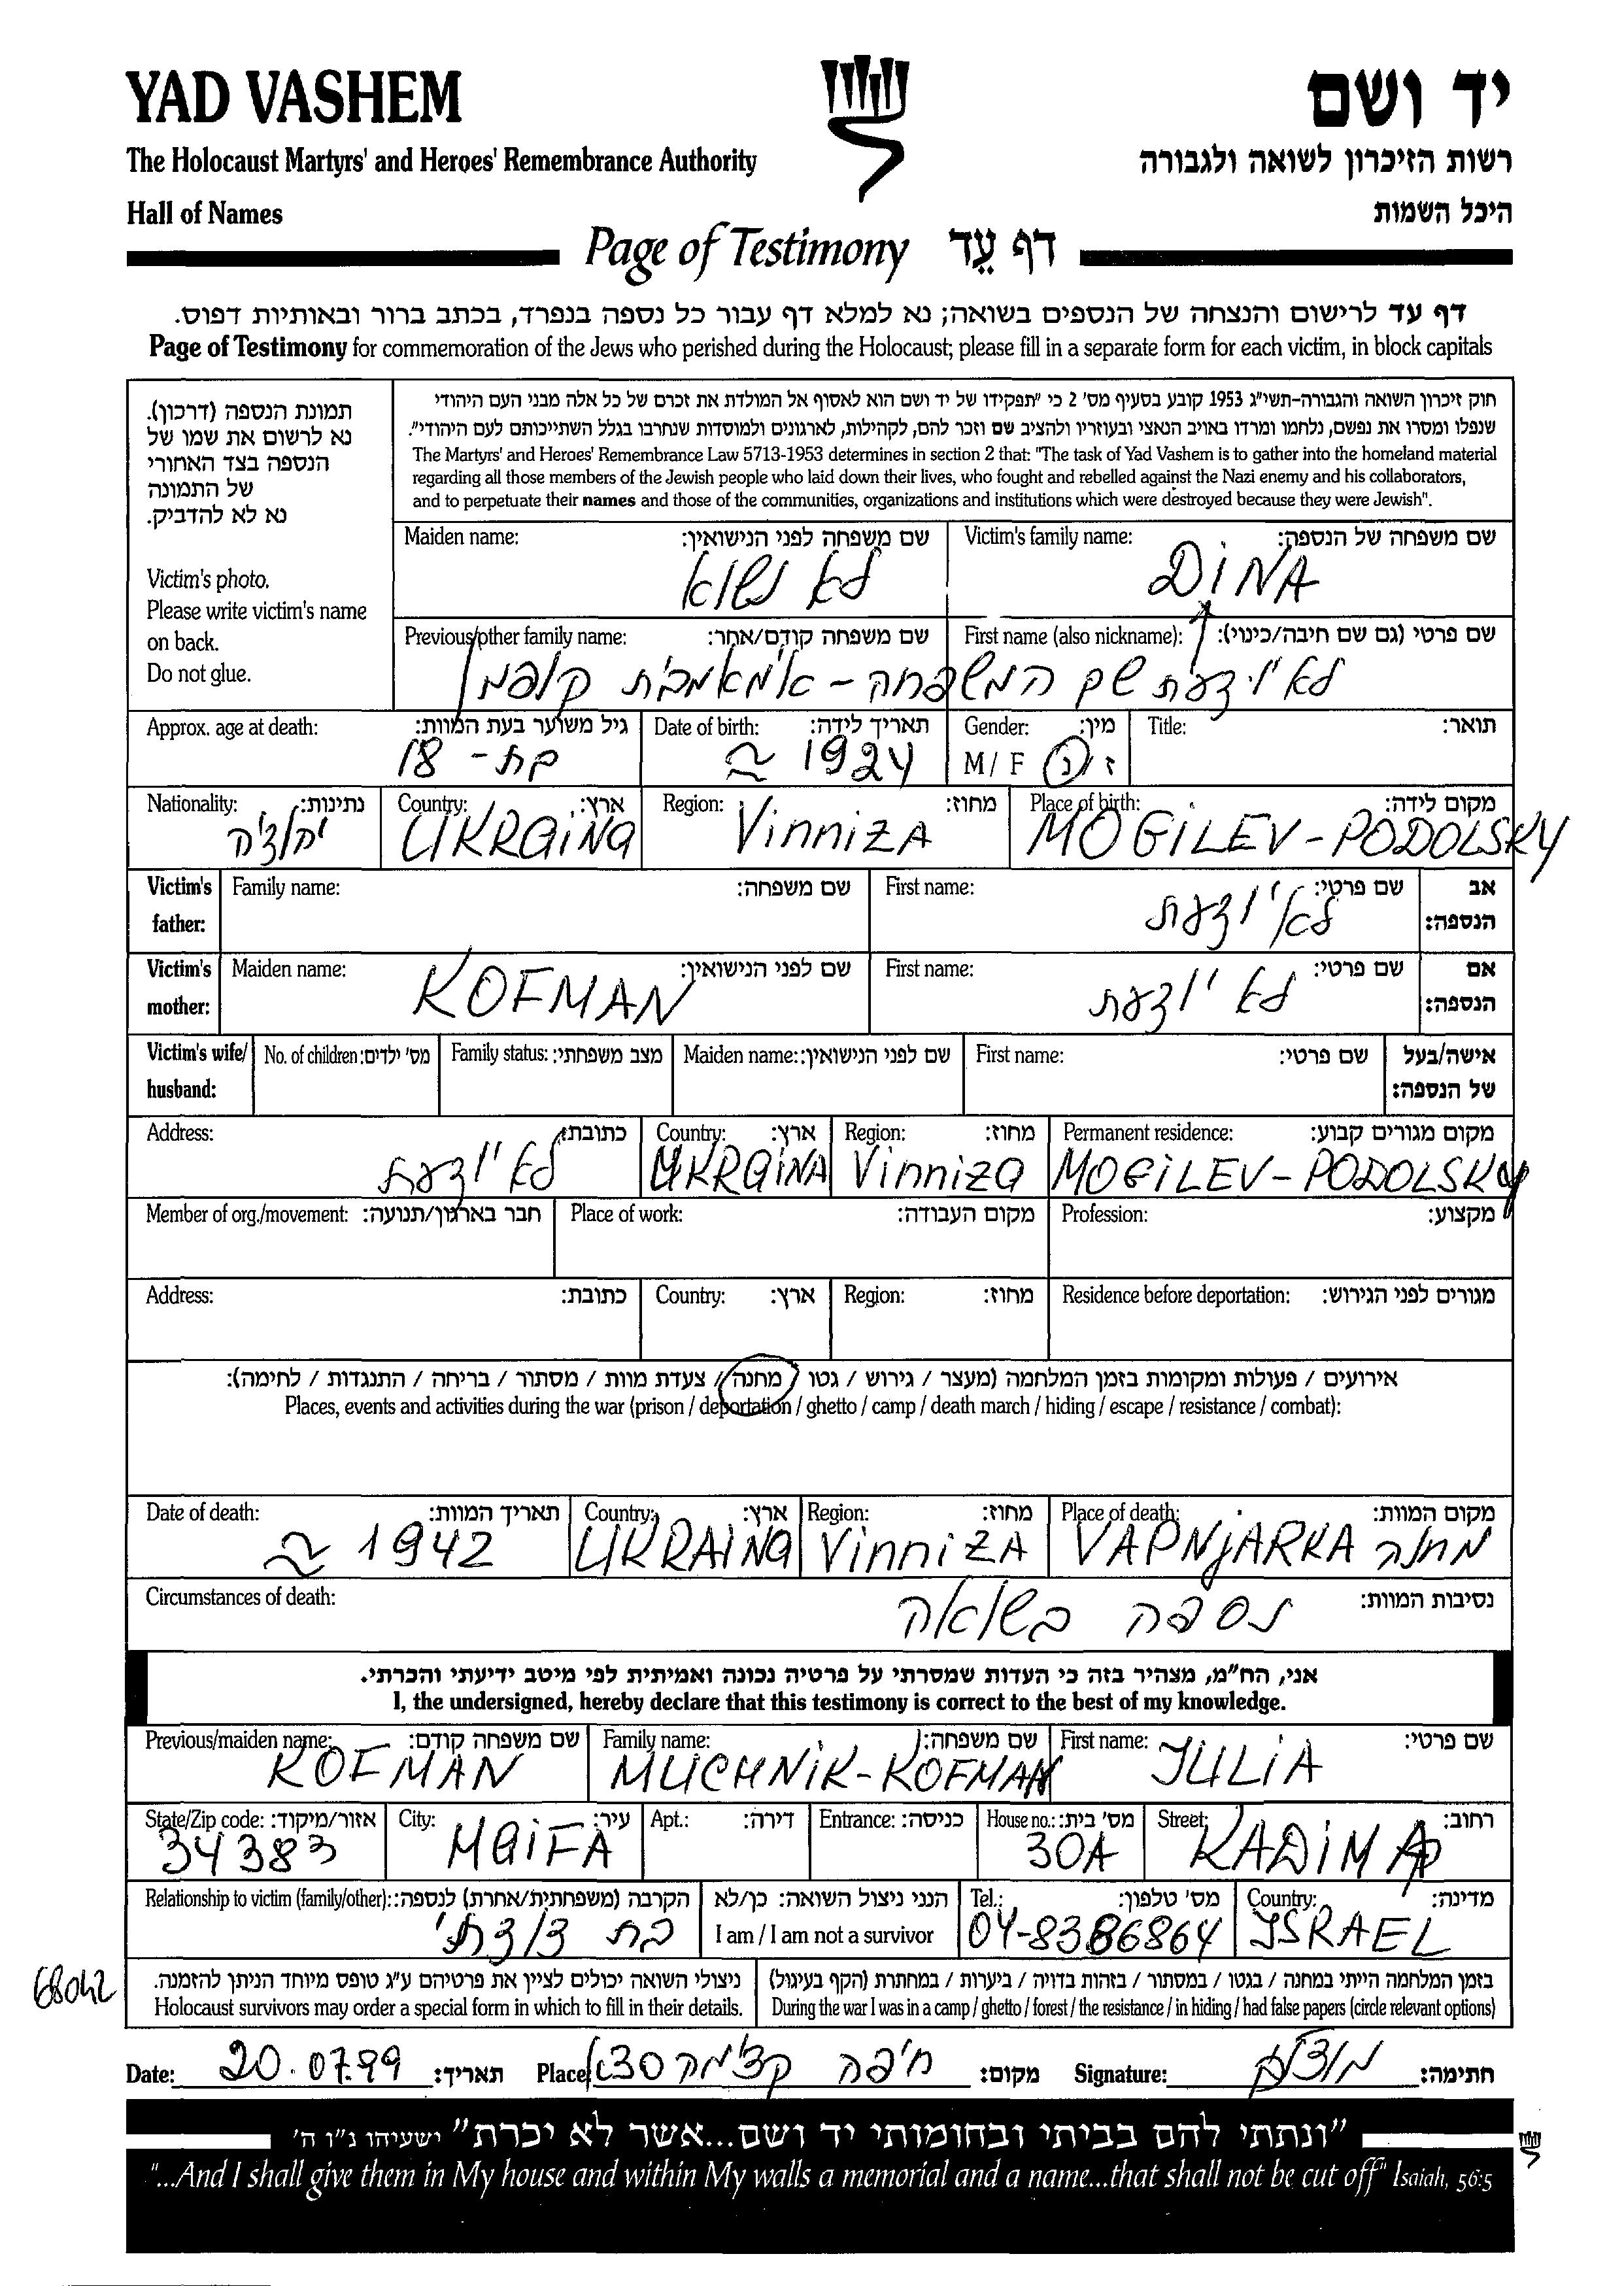 YAD VASHEM
יד ושם
The Holocaust Martyrs' and Heroes' Remembrance Authority
רשות הזיכרון לשואה ולגבורה
Hall of Names
היכל השמות
Page of Testimony דף עֵד
דף עד לרישום והנצחה של הנספים בשואה; נא למלא דף עבור כל נספה בנפרד, בכתב ברור ובאותיות דפוס.
Page of Testimony for commemoration of the Jews who perished during the Holocaust; please fill in a separate form for each victim, in block capitals
תמונת הנספה (דרכון).
נא לרשום את שמו של
הנספה בצד האחורי
של התמונה
נא לא להדביק.
Victim's photo.
Please write victim's name
on back.
Do not glue.
חוק זיכרון השואה והגבורה-תשי"ג 1953 קובע בסעיף מס' 2 כי "תפקידו של יד ושם הוא לאסוף אל המולדת את זכרם של כל אלה מבני העם היהודי
שנפלו ומסרו את נפשם, נלחמו ומרדו באויב הנאצי ובעוזריו ולהציב שם וזכר להם, לקהילות, לארגונים ולמוסדות שנחרבו בגלל השתייכותם לעם היהודי".
The Martyrs' and Heroes' Remembrance Law 5713-1953 determines in section 2 that: "The task of Yad Vashem is to gather into the homeland material
regarding all those members of the Jewish people who laid down their lives, who fought and rebelled against the Nazi enemy and his collaborators,
and to perpetuate their names and those of the communities, organizations and institutions which were destroyed because they were Jewish".
Maiden name: שם משפחה לפני הנישואין: Victim's family name: שם משפחה של הנספה:
לא נשוא DINA
Previous/other family name: שם משפחה קודם/אחר: First name (also nickname): שם פרטי (גם שם חיבה/כינוי):
לא יודעת שם המשפחה - אימא מבית קופמן
Approx. age at death: גיל משוער בעת המוות: Date of birth: תאריך לידה: Gender: מין: Title: תואר:
בת - 18 ≈ 1924 M / F ז / נ
Nationality: נתינות: Country: ארץ: Region: מחוז: Place of birth: מקום לידה:
יהודיה UKRAiNA ViNNiZA MOGiLEV-PODOLSKY
Victim's father: Family name: שם משפחה: First name: שם פרטי: אב הנספה:
לא יודעת
Victim's mother: Maiden name: שם לפני הנישואין: First name: שם פרטי: אם הנספה:
KOFMAN לא יודעת
Victim's wife/ husband: No. of children: מס' ילדים: Family status: מצב משפחתי: Maiden name: שם לפני הנישואין: First name: שם פרטי: אישה/בעל של הנספה:
Address: כתובת: Country: ארץ: Region: מחוז: Permanent residence: מקום מגורים קבוע:
לא יודעת UKRAiNA ViNNiZA MOGiLEV-PODOLSKY
Member of org./movement: חבר בארגון/תנועה: Place of work: מקום העבודה: Profession: מקצוע:
Address: כתובת: Country: ארץ: Region: מחוז: Residence before deportation: מגורים לפני הגירוש:
אירועים / פעולות ומקומות בזמן המלחמה (מעצר / גירוש / גטו / מחנה / צעדת מוות / מסתור / בריחה / התנגדות / לחימה):
Places, events and activities during the war (prison / deportation / ghetto / camp / death march / hiding / escape / resistance / combat):
Date of death: תאריך המוות: Country: ארץ: Region: מחוז: Place of death: מקום המוות:
≈ 1942 UKRAiNA ViNNiZA VAPNjARKA מחנה
Circumstances of death: נסיבות המוות:
נספה בשואה
אני, הח"מ, מצהיר בזה כי העדות שמסרתי על פרטיה נכונה ואמיתית לפי מיטב ידיעתי והכרתי.
I, the undersigned, hereby declare that this testimony is correct to the best of my knowledge.
Previous/maiden name: שם משפחה קודם: Family name: שם משפחה: First name: שם פרטי:
KOFMAN MUCHNiK-KOFMAN JULiA
State/Zip code: אזור/מיקוד: City: עיר: Apt.: דירה: Entrance: כניסה: House no.: מס' בית: Street: רחוב:
34383 HAiFA 30A KADiMA
Relationship to victim (family/other): הקרבה (משפחתית/אחרת) לנספה: הנני ניצול השואה: כן/לא Tel.: מס' טלפון: Country: מדינה:
בת דודתי I am / I am not a survivor 04-8386864 ISRAEL
68042
ניצולי השואה יכולים לציין את פרטיהם ע"ג טופס מיוחד הניתן להזמנה. בזמן המלחמה הייתי במחנה / בגטו / במסתור / בזהות בדויה / ביערות / במחתרת (הקף בעיגול)
Holocaust survivors may order a special form in which to fill in their details. During the war I was in a camp / ghetto / forest / the resistance / in hiding / had false papers (circle relevant options)
Date: 20.07.99 תאריך: Place: חיפה קדימה 30 מקום: Signature: חתימה:
"ונתתי להם בביתי ובחומותי יד ושם...אשר לא יכרת" ישעיהו נ"ו ה'
"...And I shall give them in My house and within My walls a memorial and a name...that shall not be cut off" Isaiah, 56:5